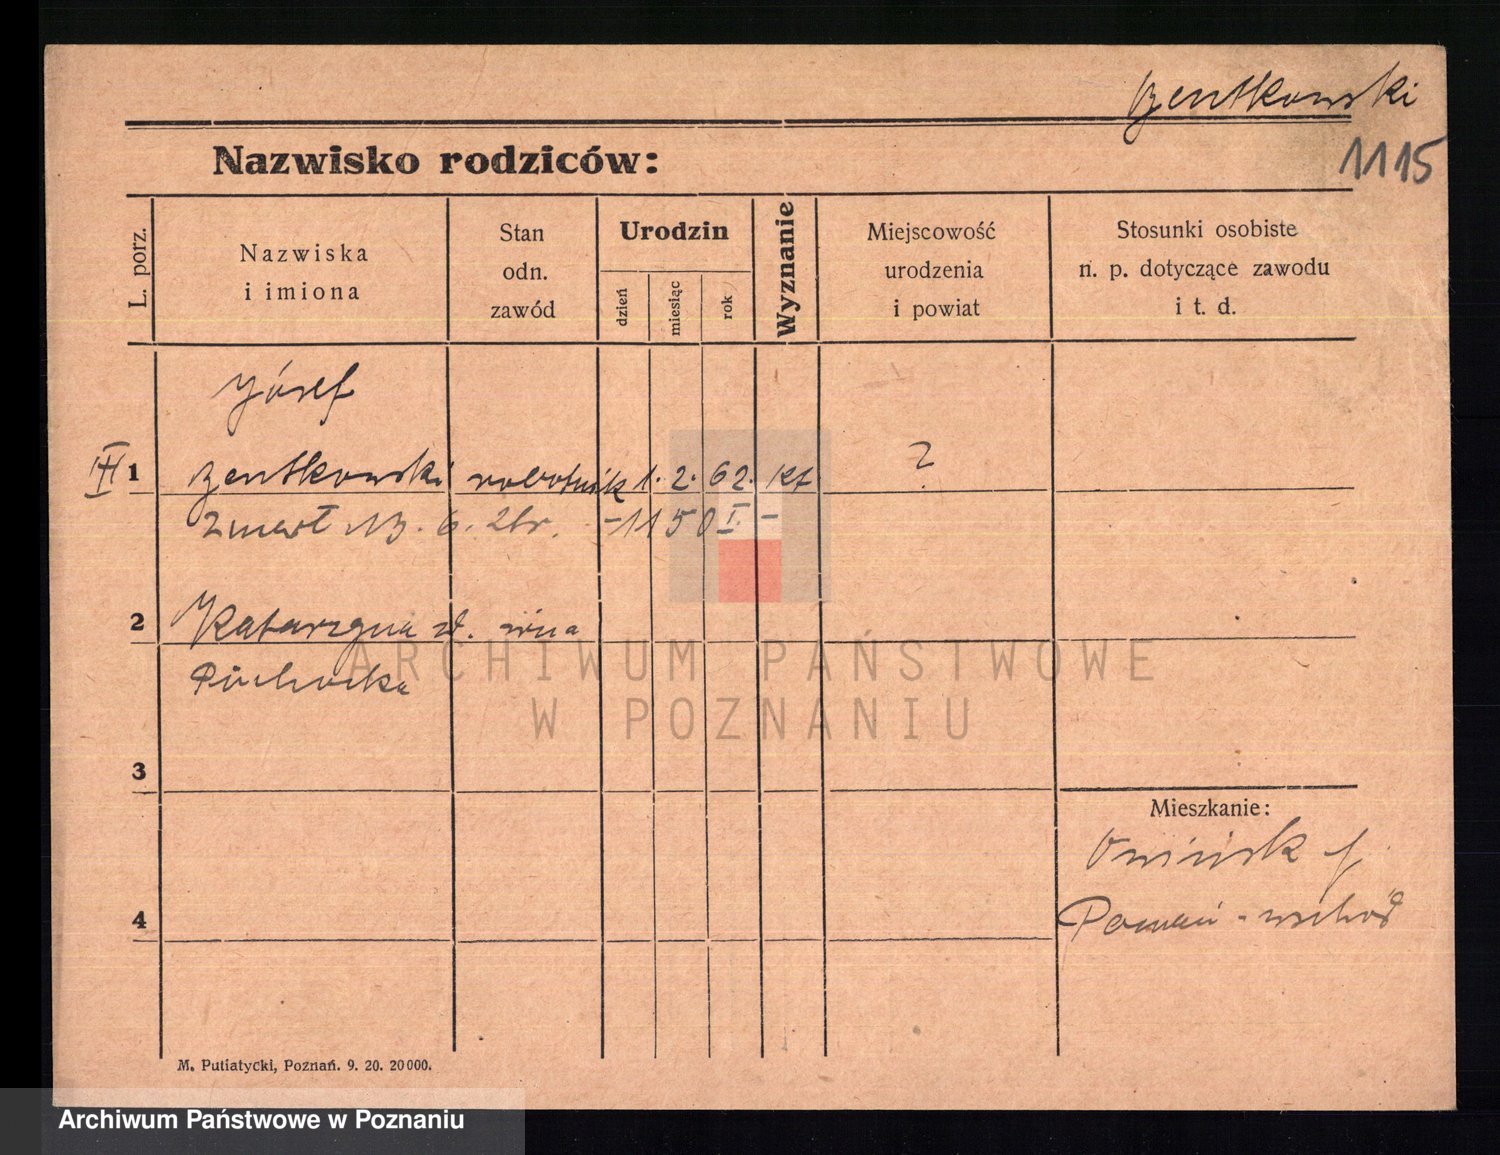 Bentkowski
1115
Nazwisko rodziców:
L. porz.
Nazwiska
i imiona
Stan
odn.
zawód
Urodzin
dzień
miesiąc
rok
Wyznanie
Miejscowość
urodzenia
i powiat
Stosunki osobiste
n. p. dotyczące zawodu
i t. d.
Józef
III 1 Bentkowski robotnik 1. 2. 62. kt ?
Zmarł 13. 6. 26r. - 1150 I. -
2 Katarzyna
3
Mieszkanie:
4 Poznań - wschód
M. Putiatycki, Poznań. 9. 20. 20000.
ARCHIWUM PAŃSTWOWE
W POZNANIU
Archiwum Państwowe w Poznaniu